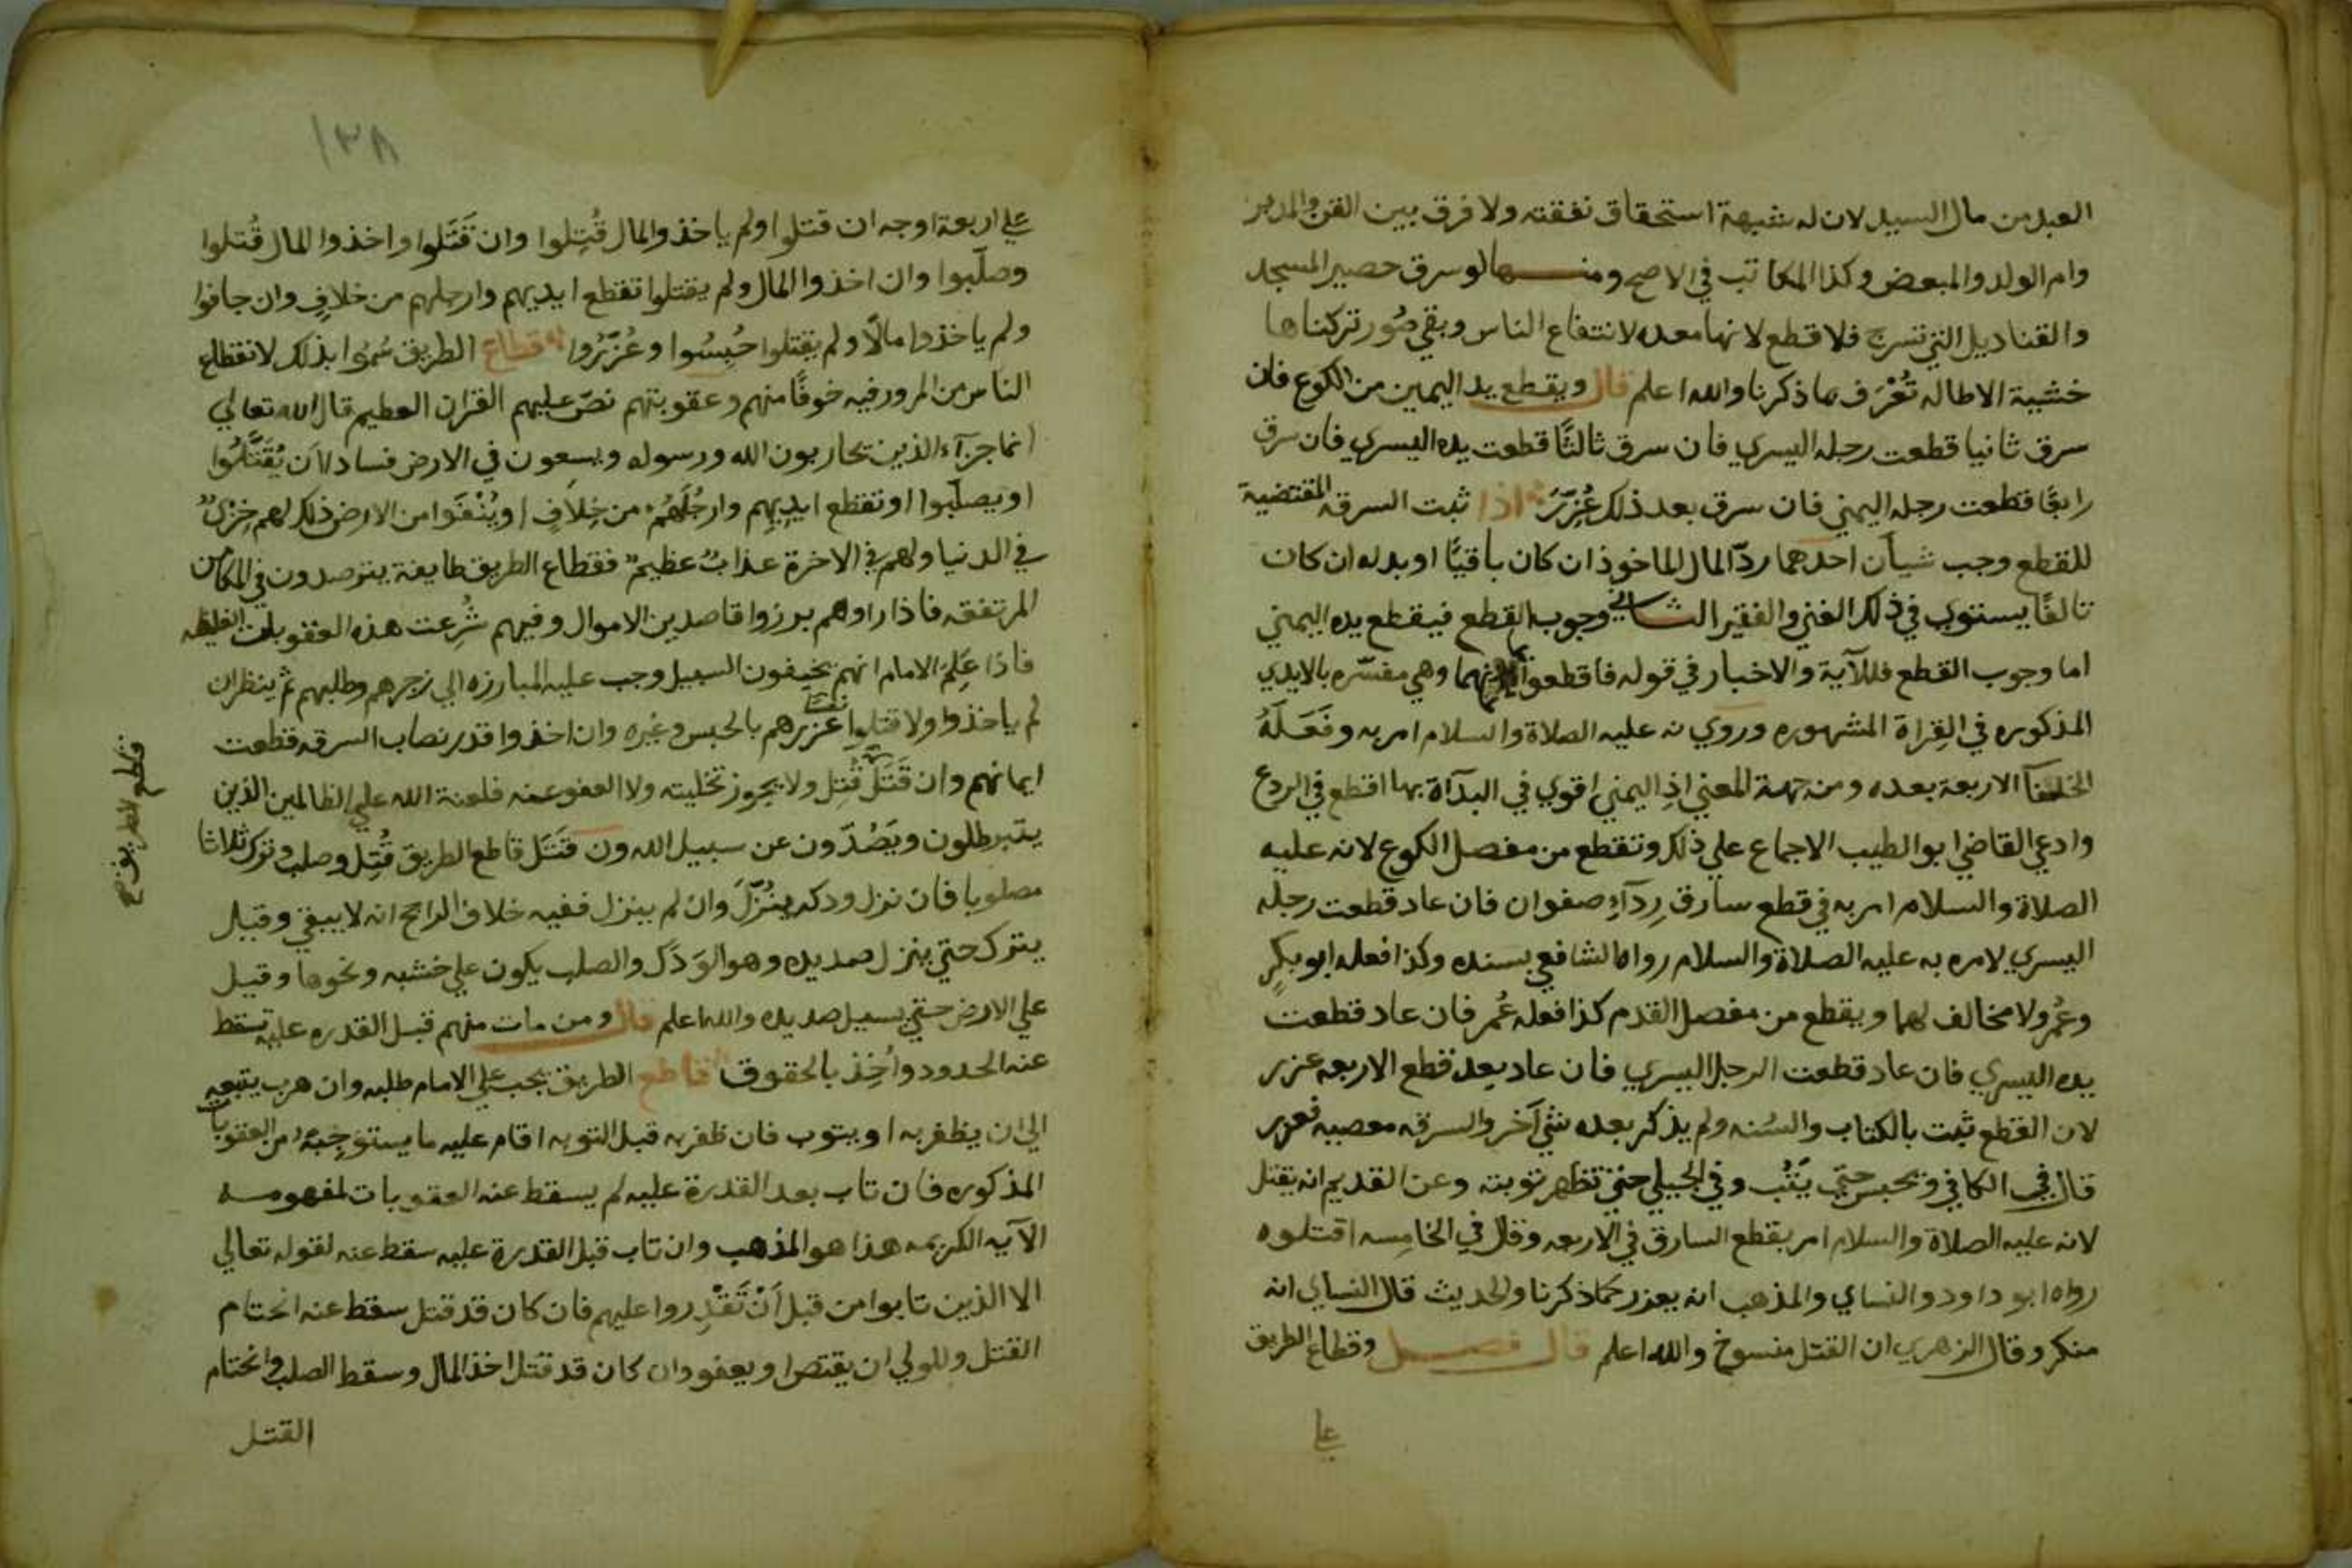 العبد من مال السيد لان له شبهة استحقاق نفقته ولا فرق بين القن والمدبر
وام الولد والمبعض وكذا المكاتب في الاصح ومنها لو سرق حصير المسجد
والقناديل التي تسرج فلا قطع لانها معده لانتفاع الناس وبقي صُور تركناها
خشية الاطاله تُعْرَف مما ذكرنا والله اعلم قال ويقطع يد اليمين من الكوع فان
سرق ثانيا قطعت رجله اليسري فان سرق ثالثًا قطعت يده اليسري فان سرق
رابعًا قطعت رجله اليمني فان سرق بعد ذلك عُزِّرَ اذا ثبت السرقه المقتضية
للقطع وجب شيأن احدهما ردّ المال الماخوذ ان كان باقيًا او بدله ان كان
تالفًا يستوي في ذلك الغني والفقير الثاني وجوب القطع فيقطع يده اليمني
اما وجوب القطع فللآية والاخبار في قوله فاقطعوا ايمانهما وهي مفسّره بالايدي
المذكوره في القِراة المشهوره وروي نه عليه الصلاة والسلام امر به وفَعَلَهُ
الخلفآ الاربعة بعده ومن جهة المعني اذِ اليمني اقوي في البدآة بها اقطع في الردع
وادعي القاضي ابو الطيب الاجماع علي ذلك وتقطع من مفصل الكوع لانه عليه
الصلاة والسلام امر به في قطع سارق رِدآءِ صفوان فان عاد قطعت رجله
اليسري لامره به عليه الصلاة والسلام رواه الشافعي بسنده وكذا فعله ابو بكرٍ
وعُمر ولا مخالف لهما ويقطع من مفصل القدم كذا فعله عُمر فان عاد قطعت
يده اليسري فان عاد قطعت الرجل اليسري فان عاد بعد قطع الاربعه عزر
لان القطع ثبت بالكتاب والسُنه ولم يذكر بعده شي آخر والسرقه معصيه فعزر
قال في الكافي ويحبس حتي يَتُب وفي الجيلي حتي تظهر توبته وعن القديم انه يقتل
لانه عليه الصلاة والسلام امر بقطع السارق في الاربعه وقال في الخامسه اقتلوه
رواه ابو داود والنساي والمذهب انه يعزر كما ذكرنا والحديث قال النساي انه
منكر وقال الزهري ان القتل منسوخ والله اعلم قال فصل وقطاع الطريق
علي
١٣٨
علي اربعة اوجه ان قتلوا ولم ياخذوا المال قُتِلوا وان قَتَلوا واخذوا المال قُتلوا
وصلّبوا وان اخذوا المال ولم يقتلوا تقطع ايديهم وارجلهم من خلافٍ وان جافوا
ولم ياخذوا مالًا ولم يقتلوا حُبِسُوا وعُزِّرُوا قطاع الطريق سُمُوا بذلك لانقطاع
الناس من المرور فيه خوفًا منهم وعقوبتهم نصّ عليهم القران العظيم قال الله تعالي
انما جزآء الذين يحاربون الله ورسوله ويسعون في الارض فسادا ان يُقَتَّلُوا
او يصلّبوا او تقطع ايدِيهِم وارجُلُهُم من خِلافٍ او يُنْفَوا من الارض ذلك لهم خِزيٌ
في الدنيا ولهم في الاخرة عذابٌ عظيمٌ فقطاع الطريق طايفة يترصدون في المكامن
المرتفقه فاذا راوهم برزوا قاصدين الاموال وفيهم شُرِعت هذه العقوبات الغليظه
فاذا عَلِمَ الامام انهم يخيفون السبيل وجب عليه المبارزه الي زجرهم وطلبهم ثم ينظر ان
لم ياخذوا ولا قتلوا عزرهم بالحبس وغيره وان اخذوا قدر نصاب السرقه قطعت
ايمانهم وان قَتَلَ قُتِل ولا يجوز تخليته ولا العفو عنه فلعنة الله علي الظالمين الذين
يتبرطلون ويَصُدّون عن سبيل الله ون قَتَل قاطع الطريق قُتِل وصلب وترك ثلاثا
مصلوبا فان نزل ودكه يُنَزّل وان لم ينزل ففيه خلاف الراجح انه لا يبقي وقيل
يترك حتي ينزل صديده وهو الوَدَك والصلب يكون علي خشبه ونحوها وقيل
علي الارض حتي يسيل صديده والله اعلم قال ومن مات منهم قبل القدره عليه تسقط
عنه الحدود واُخِذ بالحقوق قاطع الطريق يجب علي الامام طلبه وان هرب يتبعه
الي ان يظفر به او يتوب فان ظفر به قبل التوبه اقام عليه ما يستوجِبهُ من العقوبات
المذكوره فان تاب بعد القدرة عليه لم يسقط عنه العقوبات لمفهومـه
الآيه الكريمه هذا هو المذهب وان تاب قبل القدرة عليه سقط عنه لقوله تعالي
الا الذين تابوا من قبل اَنْ تَقْدِروا عليهم فان كان قد قتل سقط عنه انحتام
القتل وللولي ان يقتص او يعفو وان كان قد قتل اخذ المال وسقط الصلب وانحتام
القتل
قطع الطريق